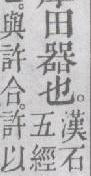 田器也。漢石
五經
與許合。許以